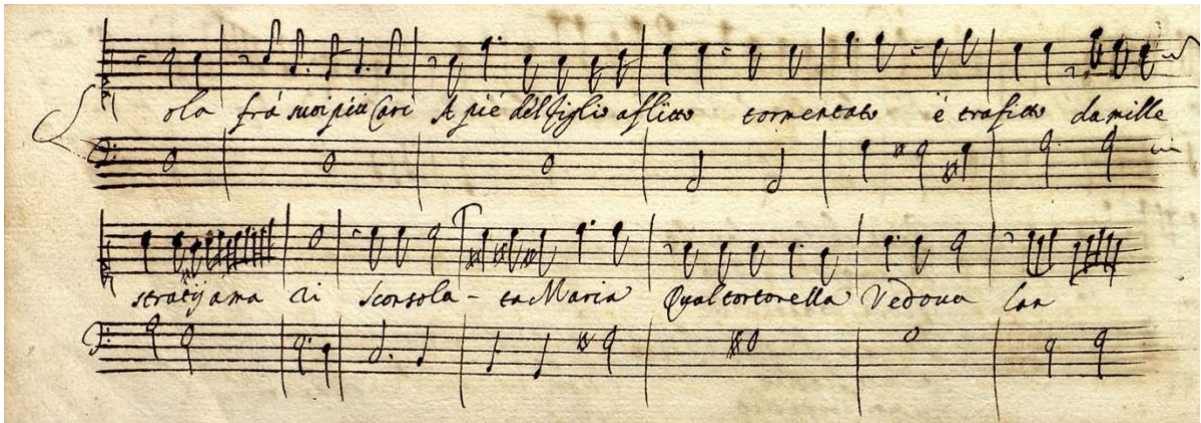 Sola frà suoi più Cari A piè del figlio aflitto tormentato è trafitto da mille
stratij amari sconsola-ta Maria Qual tortorella Vedoua lan